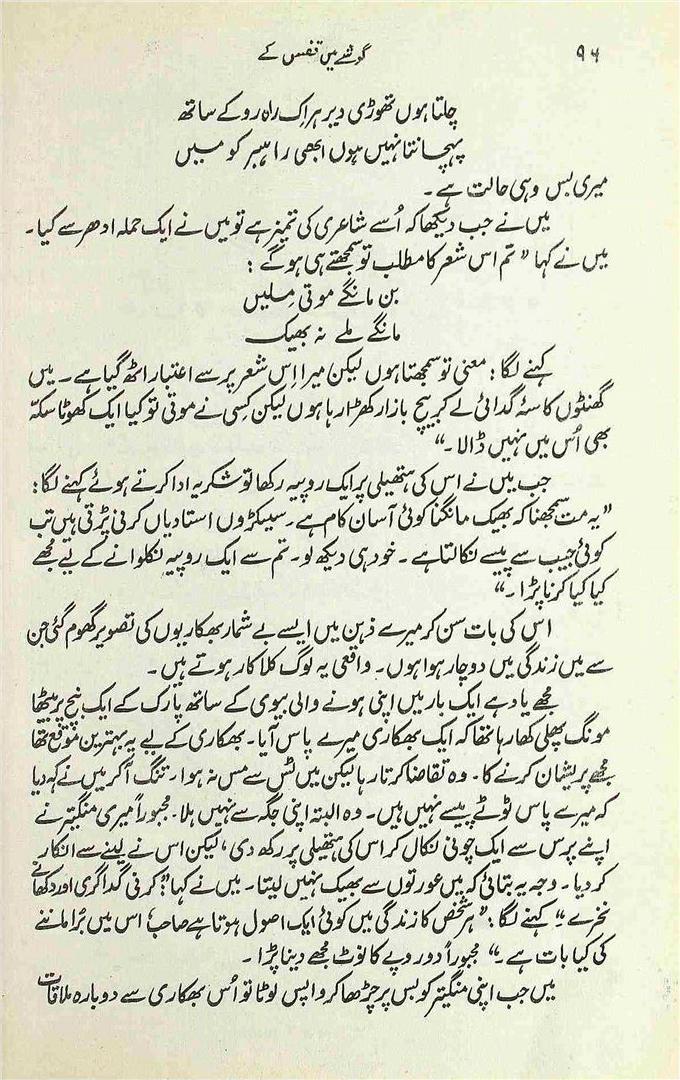 ۹۶ گوشے میں قفس کے
چلتا ہوں تھوڑی دیر ہر اک راہ رو کے ساتھ
پہچانتا نہیں ہوں ابھی راہبر کو میں
میری بس وہی حالت ہے۔
میں نے جب دیکھا کہ اُسے شاعری کی تمیز ہے تو میں نے ایک حملہ ادھر سے کیا۔
میں نے کہا ”تم اس شعر کا مطلب تو سمجھتے ہی ہوگے :
بن مانگے موتی ملیں
مانگے ملے نہ بھیک
کہنے لگا : معنی تو سمجھتا ہوں لیکن میرا اِس شعر پر سے اعتبار اٹھ گیا ہے۔ میں
گھنٹوں کاسۂ گدائی لے کر بیچ بازار کھڑا رہا ہوں لیکن کسی نے موتی تو کیا ایک کھوٹا سکہ
بھی اُس میں نہیں ڈالا۔“
جب میں نے اس کی ہتھیلی پر ایک روپیہ رکھا تو شکریہ ادا کرتے ہوئے کہنے لگا :
”یہ مت سمجھنا کہ بھیک مانگنا کوئی آسان کام ہے۔ سیکڑوں استادیاں کرنی پڑتی ہیں تب
کوئی جیب سے پیسے نکالتا ہے۔ خود ہی دیکھ لو۔ تم سے ایک روپیہ نکلوانے کے لیے مجھے
کیا کیا کرنا پڑا۔“
اس کی بات سن کر میرے ذہن میں ایسے بے شمار بھکاریوں کی تصویر گھوم گئی جن
سے میں زندگی میں دوچار ہوا ہوں۔ واقعی یہ لوگ کلا کار ہوتے ہیں۔
مجھے یاد ہے ایک بار میں اپنی ہونے والی بیوی کے ساتھ پارک کے ایک بنچ پر بیٹھا
مونگ پھلی کھا رہا تھا کہ ایک بھکاری میرے پاس آیا۔ بھکاری کے لیے یہ بہترین موقع تھا
مجھے پریشان کرنے کا۔ وہ تقاضا کرتا رہا لیکن میں ٹس سے مس نہ ہوا۔ تنگ آکر میں نے کہہ دیا
کہ میرے پاس ٹوٹے پیسے نہیں ہیں۔ وہ البتہ اپنی جگہ سے نہیں ہلا۔ مجبوراً میری منگیتر نے
اپنے پرس سے ایک چونی نکال کر اس کی ہتھیلی پر رکھ دی، لیکن اس نے لینے سے انکار
کر دیا۔ وجہ یہ بتائی کہ میں عورتوں سے بھیک نہیں لیتا۔ میں نے کہا ”کرنی گداگری اور دکھانے
نخرے۔“ کہنے لگا : ”ہر شخص کا زندگی میں کوئی ایک اصول ہوتا ہے صاحب اس میں بُرا ماننے
کی کیا بات ہے۔“ مجبوراً دو روپے کا نوٹ مجھے دینا پڑا۔
میں جب اپنی منگیتر کو بس پر چڑھا کر واپس لوٹا تو اُس بھکاری سے دوبارہ ملاقات